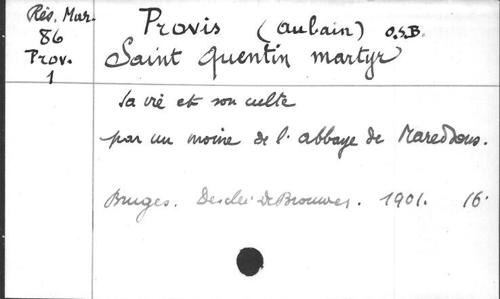 Rés. Mur.
86
Prov.
1
Provis (Aubain) O.S.B.
Saint Quentin martyr
sa vie et son culte
par un moine de l'abbaye de Maredsous.
Bruges. Desclée De Brouwer. 1901. 16°